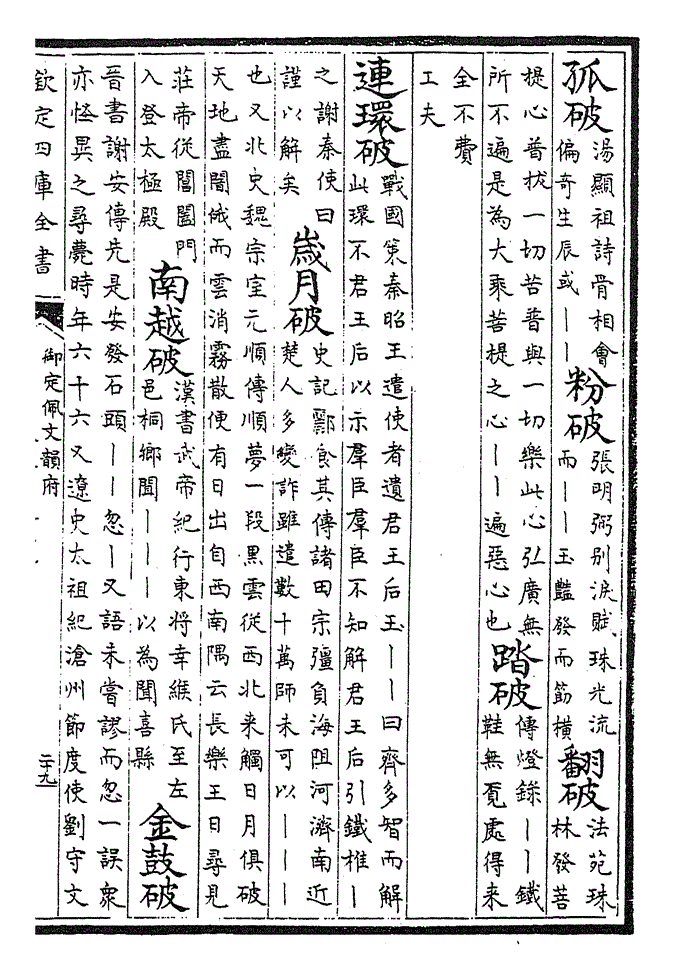 孤破湯顯祖詩骨相會偏奇生辰或丨丨粉破張明弼别淚賦珠光流而丨丨玉豔發而筯橫翻破法苑珠林發菩
提心普拔一切苦普與一切樂此心弘廣無所不遍是為大乘菩提之心丨丨遍惡心也踏破傳燈錄丨丨鐵鞋無覓處得来
全不費工夫
連環破戰國策秦昭王遣使者遺君王后玉丨丨曰齊多智而解此環不君王后以示羣臣羣臣不知解君王后引鐵椎丨
之謝秦使曰謹以解矣歲月破史記酈食其傳諸田宗彊負海阻河濟南近楚人多變詐雖遣數十萬師未可以丨丨丨
也又北史魏宗室元順傳順夢一段黒雲從西北来觸日月俱破天地盡闇俄而雲消霧散便有日出自西南隅云長樂王日尋見
莊帝從閶闔門入登太極殿南越破漢書武帝紀行東將幸緱氏至左邑桐鄉聞丨丨丨以為聞喜縣金鼓破
晉書謝安傳先是安發石頭丨丨忽丨又語未嘗謬而忽一誤衆亦怪異之尋薨時年六十六又遼史太祖紀滄州節度使劉守文
欽定四庫全書 御定佩文韻府 二十九